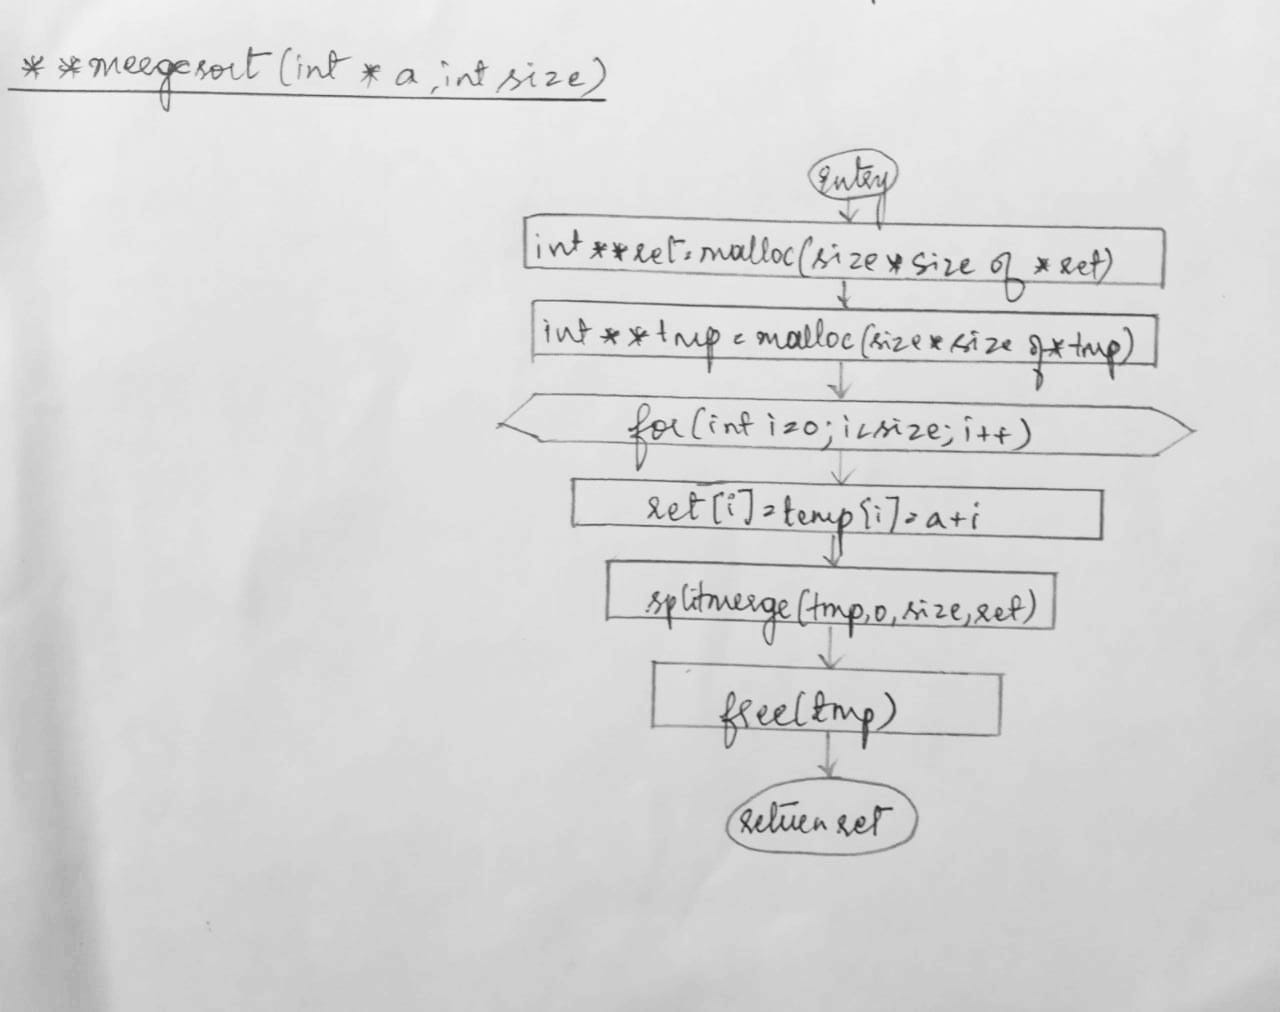 **mergesort(int * a, int size)
entry
int **ret = malloc(size * size of *ret)
int **tmp = malloc(size * size of *tmp)
for(int i=0; i<size; i++)
ret[i] = temp[i] = a+i
splitmerge(tmp,0,size,ret)
free(tmp)
return ret